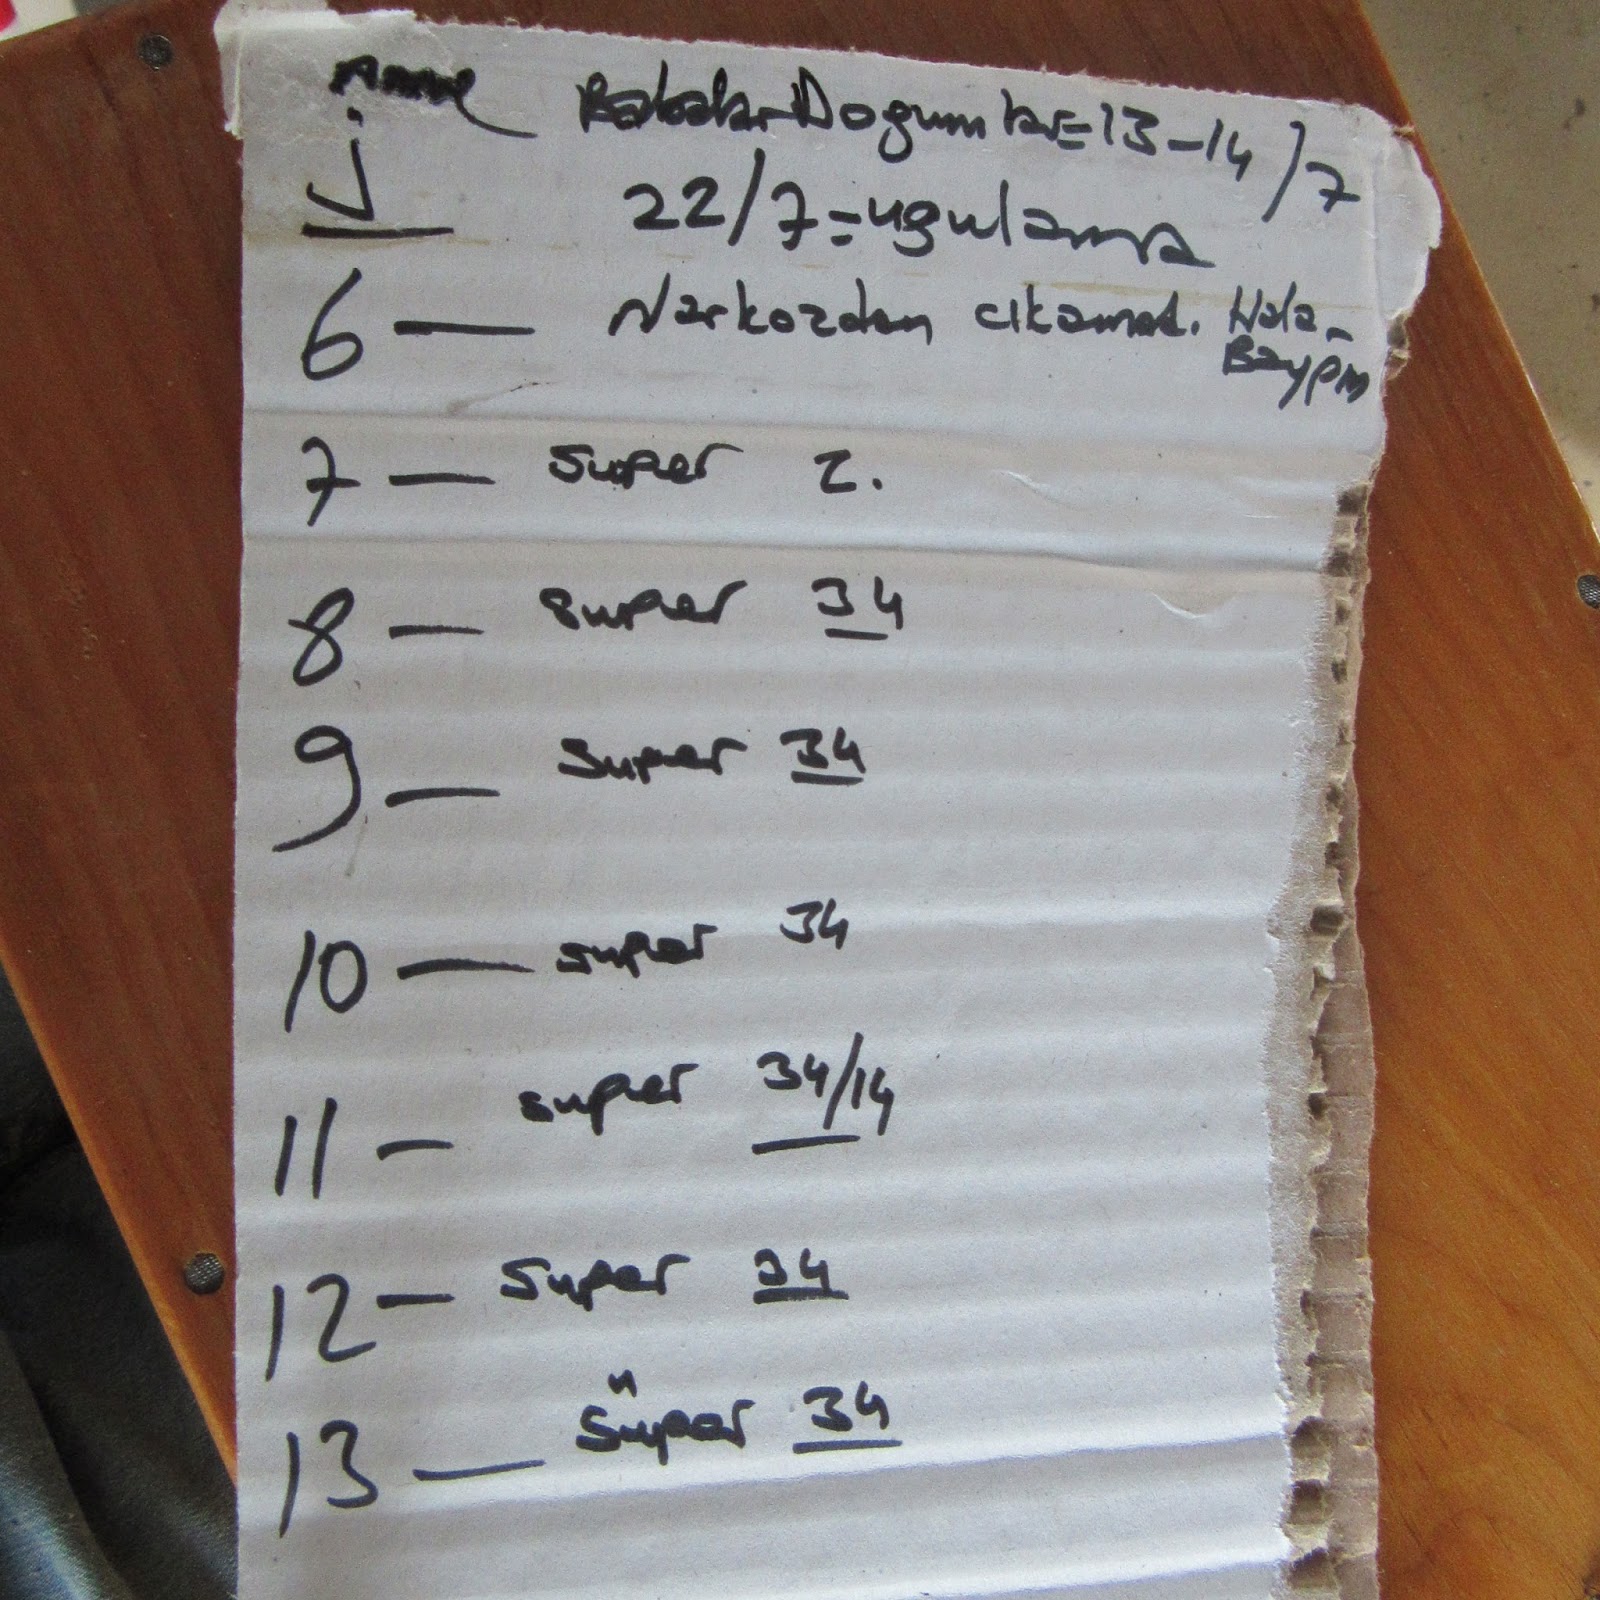 Anne Babalar Dogum tar=13-14/7
j 22/7=uygulama
6 — Narkozdan cikamad. Hala-
Baygin
7 — super 2.
8 — super 34
9 — super 34
10 — super 34
11 — super 34/14
12 — super 34
13 — Süper 34